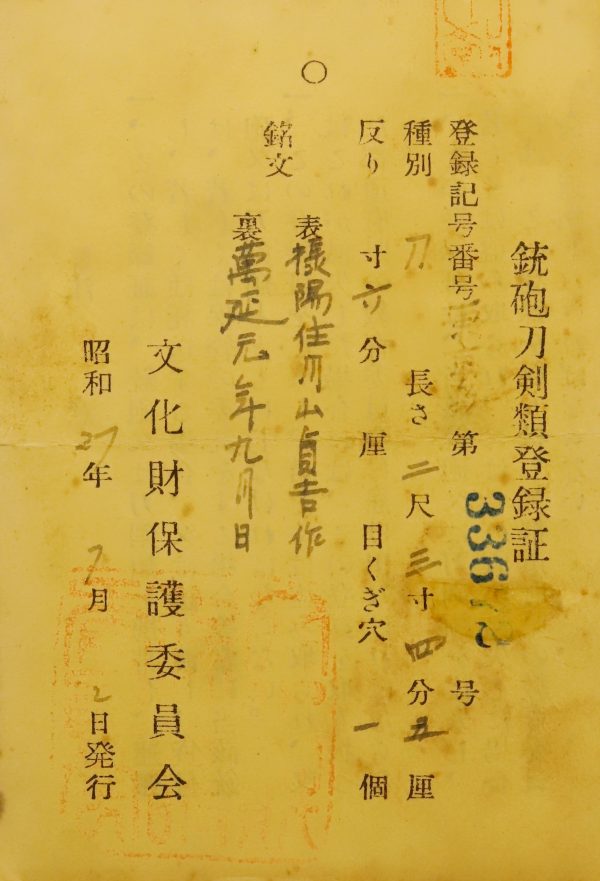 銃砲刀剣類登録証
登録記号番号 第 33672 号
種別 刀 長さ 二尺三寸四分五厘
反り 寸六分 厘 目くぎ穴 一個
銘文 表 陽住川山貞吉作
裏 萬延元年九月日
文化財保護委員会
昭和27年7月2日発行